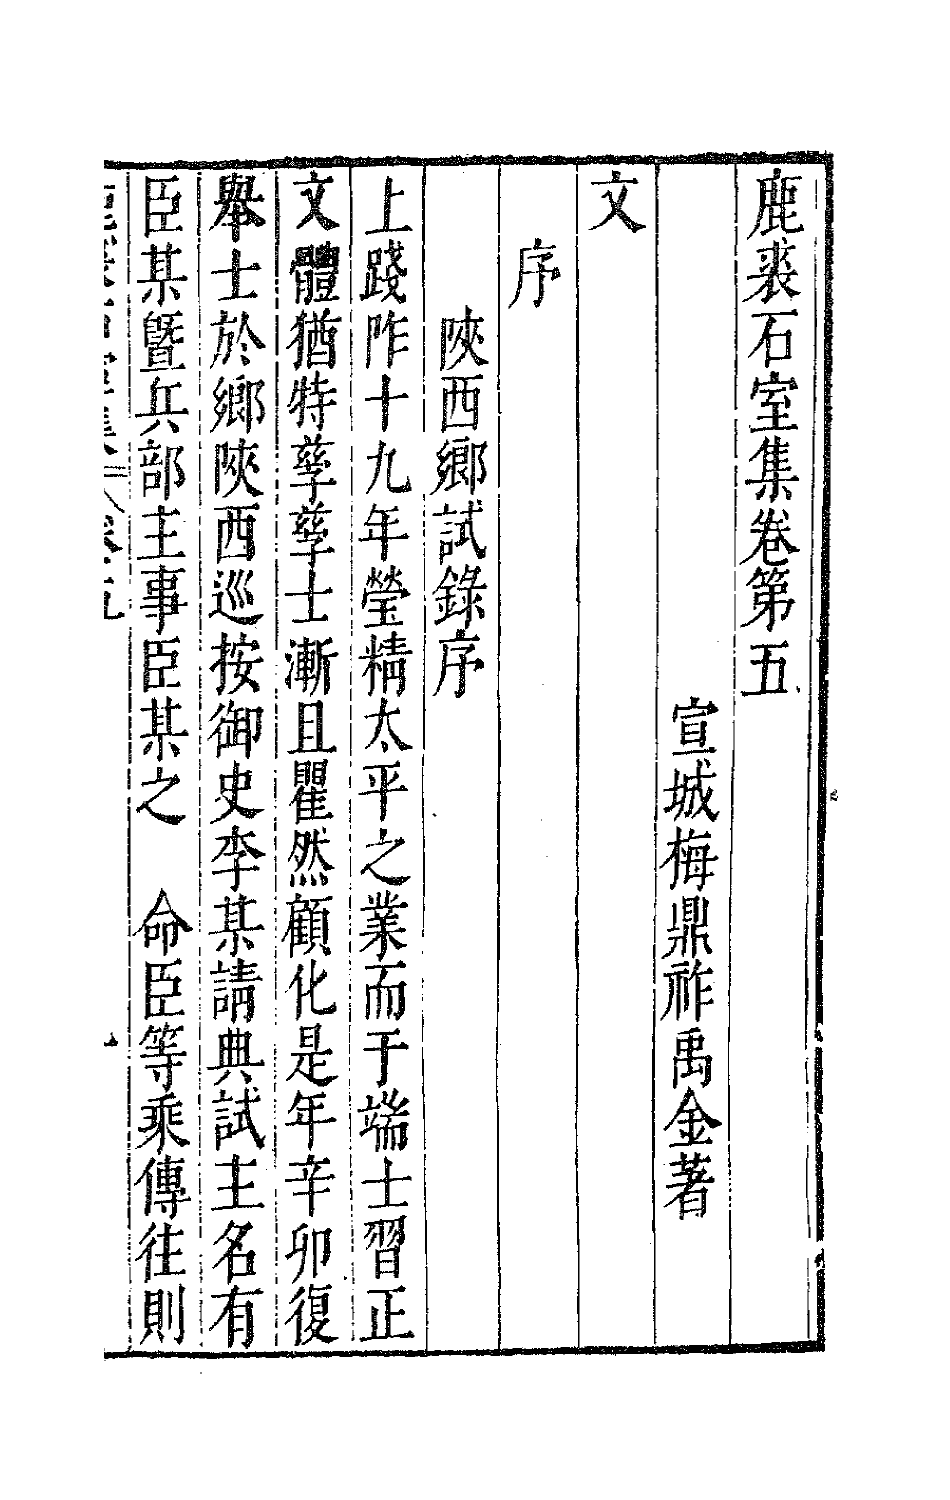 鹿裘石室集卷第五
宣城梅鼎祚禹金著
文
序
陜西鄉試錄序
上踐阼十九年瑩精太平之業而于端士習正
文體猶特孳孳士漸且瞿然顧化是年辛卯復
舉士於鄉陜西巡按御史李某請典試主名有
臣某曁兵部主事臣某之 命臣等乘傳往則